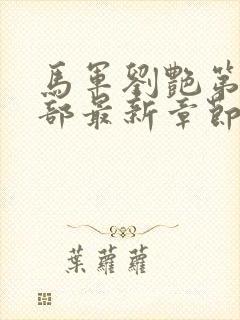 馬軍劉艷第
部最新章節
葉蘿蘿